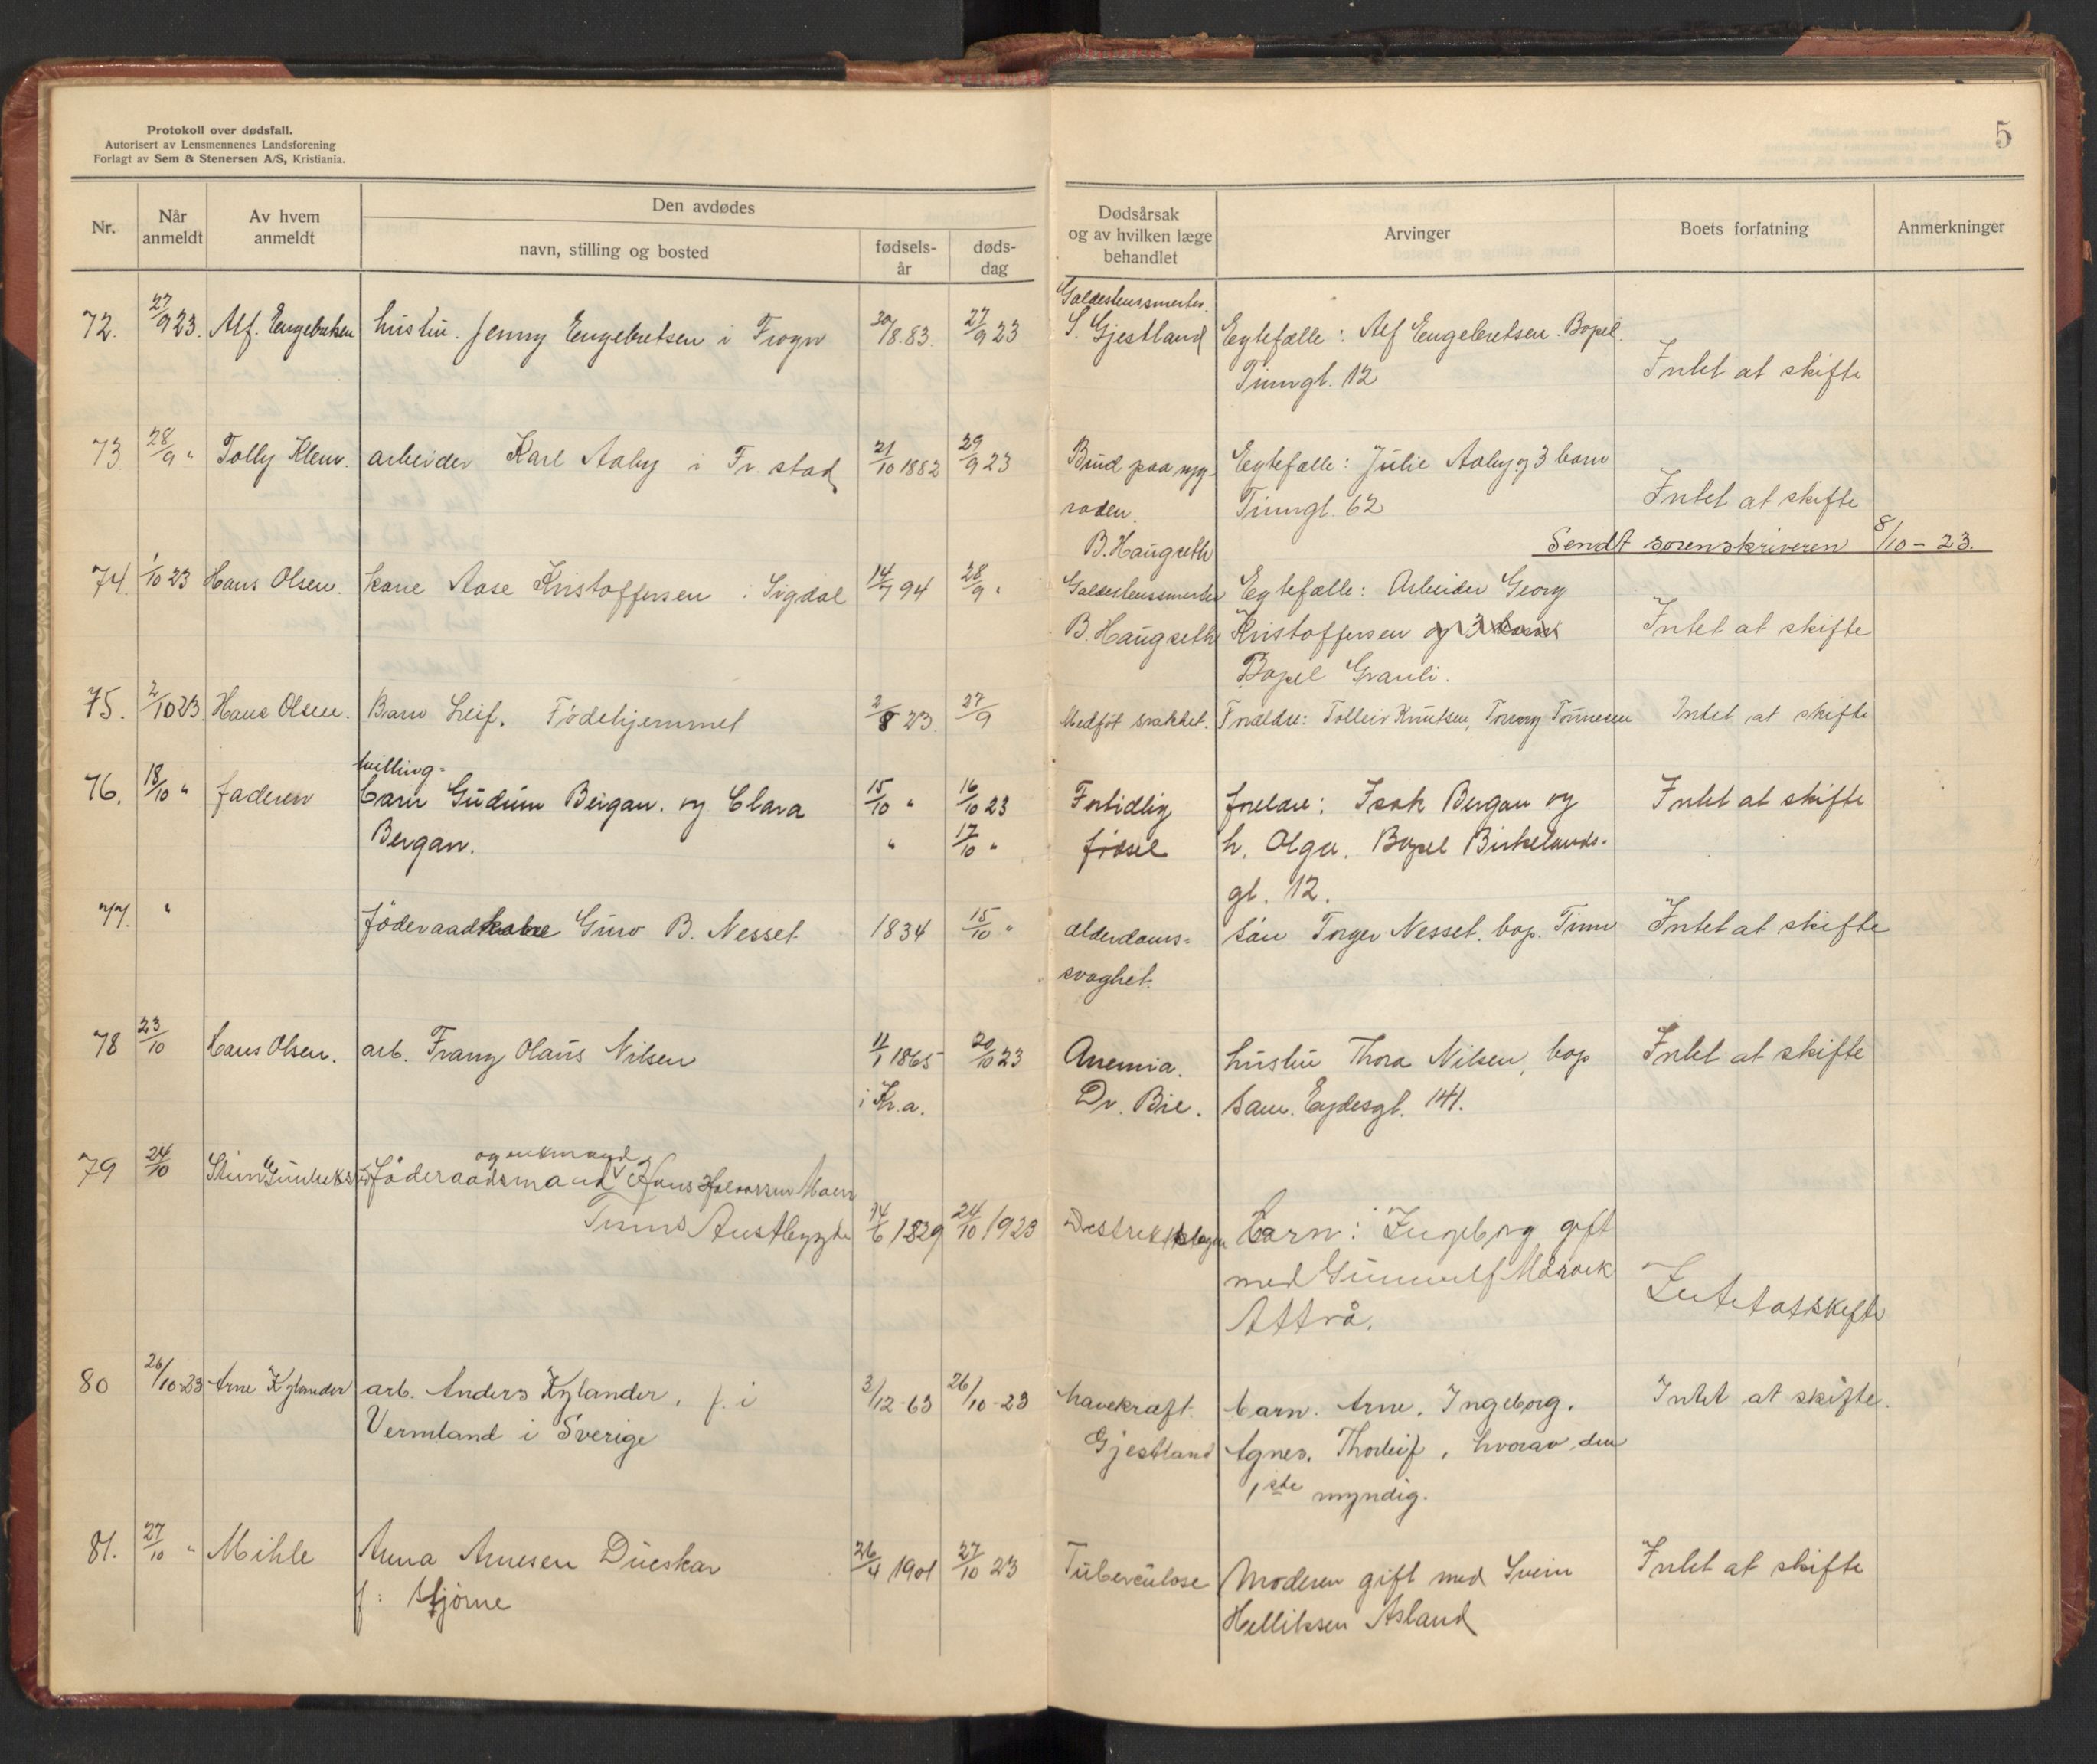 Protokoll over dødsfall.
Autorisert av Lensmennenes Landsforening
Forlagt av Sem & Stenersen A/S, Kristiania.
5
Nr.
Når anmeldt
Av hvem anmeldt
Den avdødes
navn, stilling og bosted
fødsels-år
døds-dag
Dødsårsak og av hvilken læge behandlet
Arvinger
Boets forfatning
Anmerkninger
72. 27/9 23. Alf. Engebretsen hustru. Jenny Engebretsen i Frogn 30/8.83. 27/9 23 Galdestenssmerter.
S. Gjestland Egtefælle: Alf Engebretsen. Bopel.
Tinngt. 12 Intet at skifte
73 28/9 " Tolly Klem. arbeider Karl Aaby i Fr.stad 21/10 1882 29/9 23 Brud paa ryg- Egtefælle: Julie Aaby og 3 barn
raden. Tinngt. 62 Intet at skifte
B. Haugseth Sendt sorenskriveren 8/10 - 23.
74. 1/10 23 Hans Olsen. kone Aase Kristoffersen i Sigdal 14/7 94 28/9 " Galdestenssmerter Egtefælle: Arbeider Georg
B. Haugseth Kristoffersen og 3 barn Intet at skifte
Bopel Grauli.
75. 2/10 23 Hans Olsen. Barn Leif. Fødehjemmet 2/8 23. 27/9 Medføt svakhet. Forældre: Tolleiv Knutsen, Tommy Tønnesen Intet at skifte
tvilling-
76. 18/10 " faderen barn Gudrun Bergan. og Clara 15/10 " 16/10 23 Fortidlig foreldre: Isak Bergan og Intet at skifte
Bergan. " 17/10 " fødsel h. Olga. Bopel Birkelands-
gt. 12.
77. " føderaadskone Guro B. Nesset 1834 15/10 " alderdoms- søn Torger Nesset. bop. Tinn Intet at skifte
svaghet.
78 23/10 Hans Olsen. arb. Franz Olaus Nilsen 11/1 1865 20/10 23 Anemia. hustru Thora Nilsen, bop Intet at skifte
i Kr.a. Dr. Bie. Sam. Eydesgt. 141.
79 24/10 og enkemand
Føderaadsmand Hans Halvorsen Moen
Tinns Austbygde 14/6 1829 24/10 1923 Barn: Ingeborg gift
med Gunnulf Måråek
Attrå. Intet at skifte
80 26/10-23 Arne Kylander arb. Anders Kylander, f. i 3/12-63 26/10-23 Mavekræft. barn. Arne. Ingeborg. Intet at skifte.
Vermland i Sverige Gjestland Agnes. Thorleif, hvorav den
1ste myndig.
81. 27/10 " Mihle Anna Arnesen Dueskar 26/4 1901 27/10 23 Tuberculose Moderen gift med Svein Intet at skifte
f: Hjørne Helliksen Asland